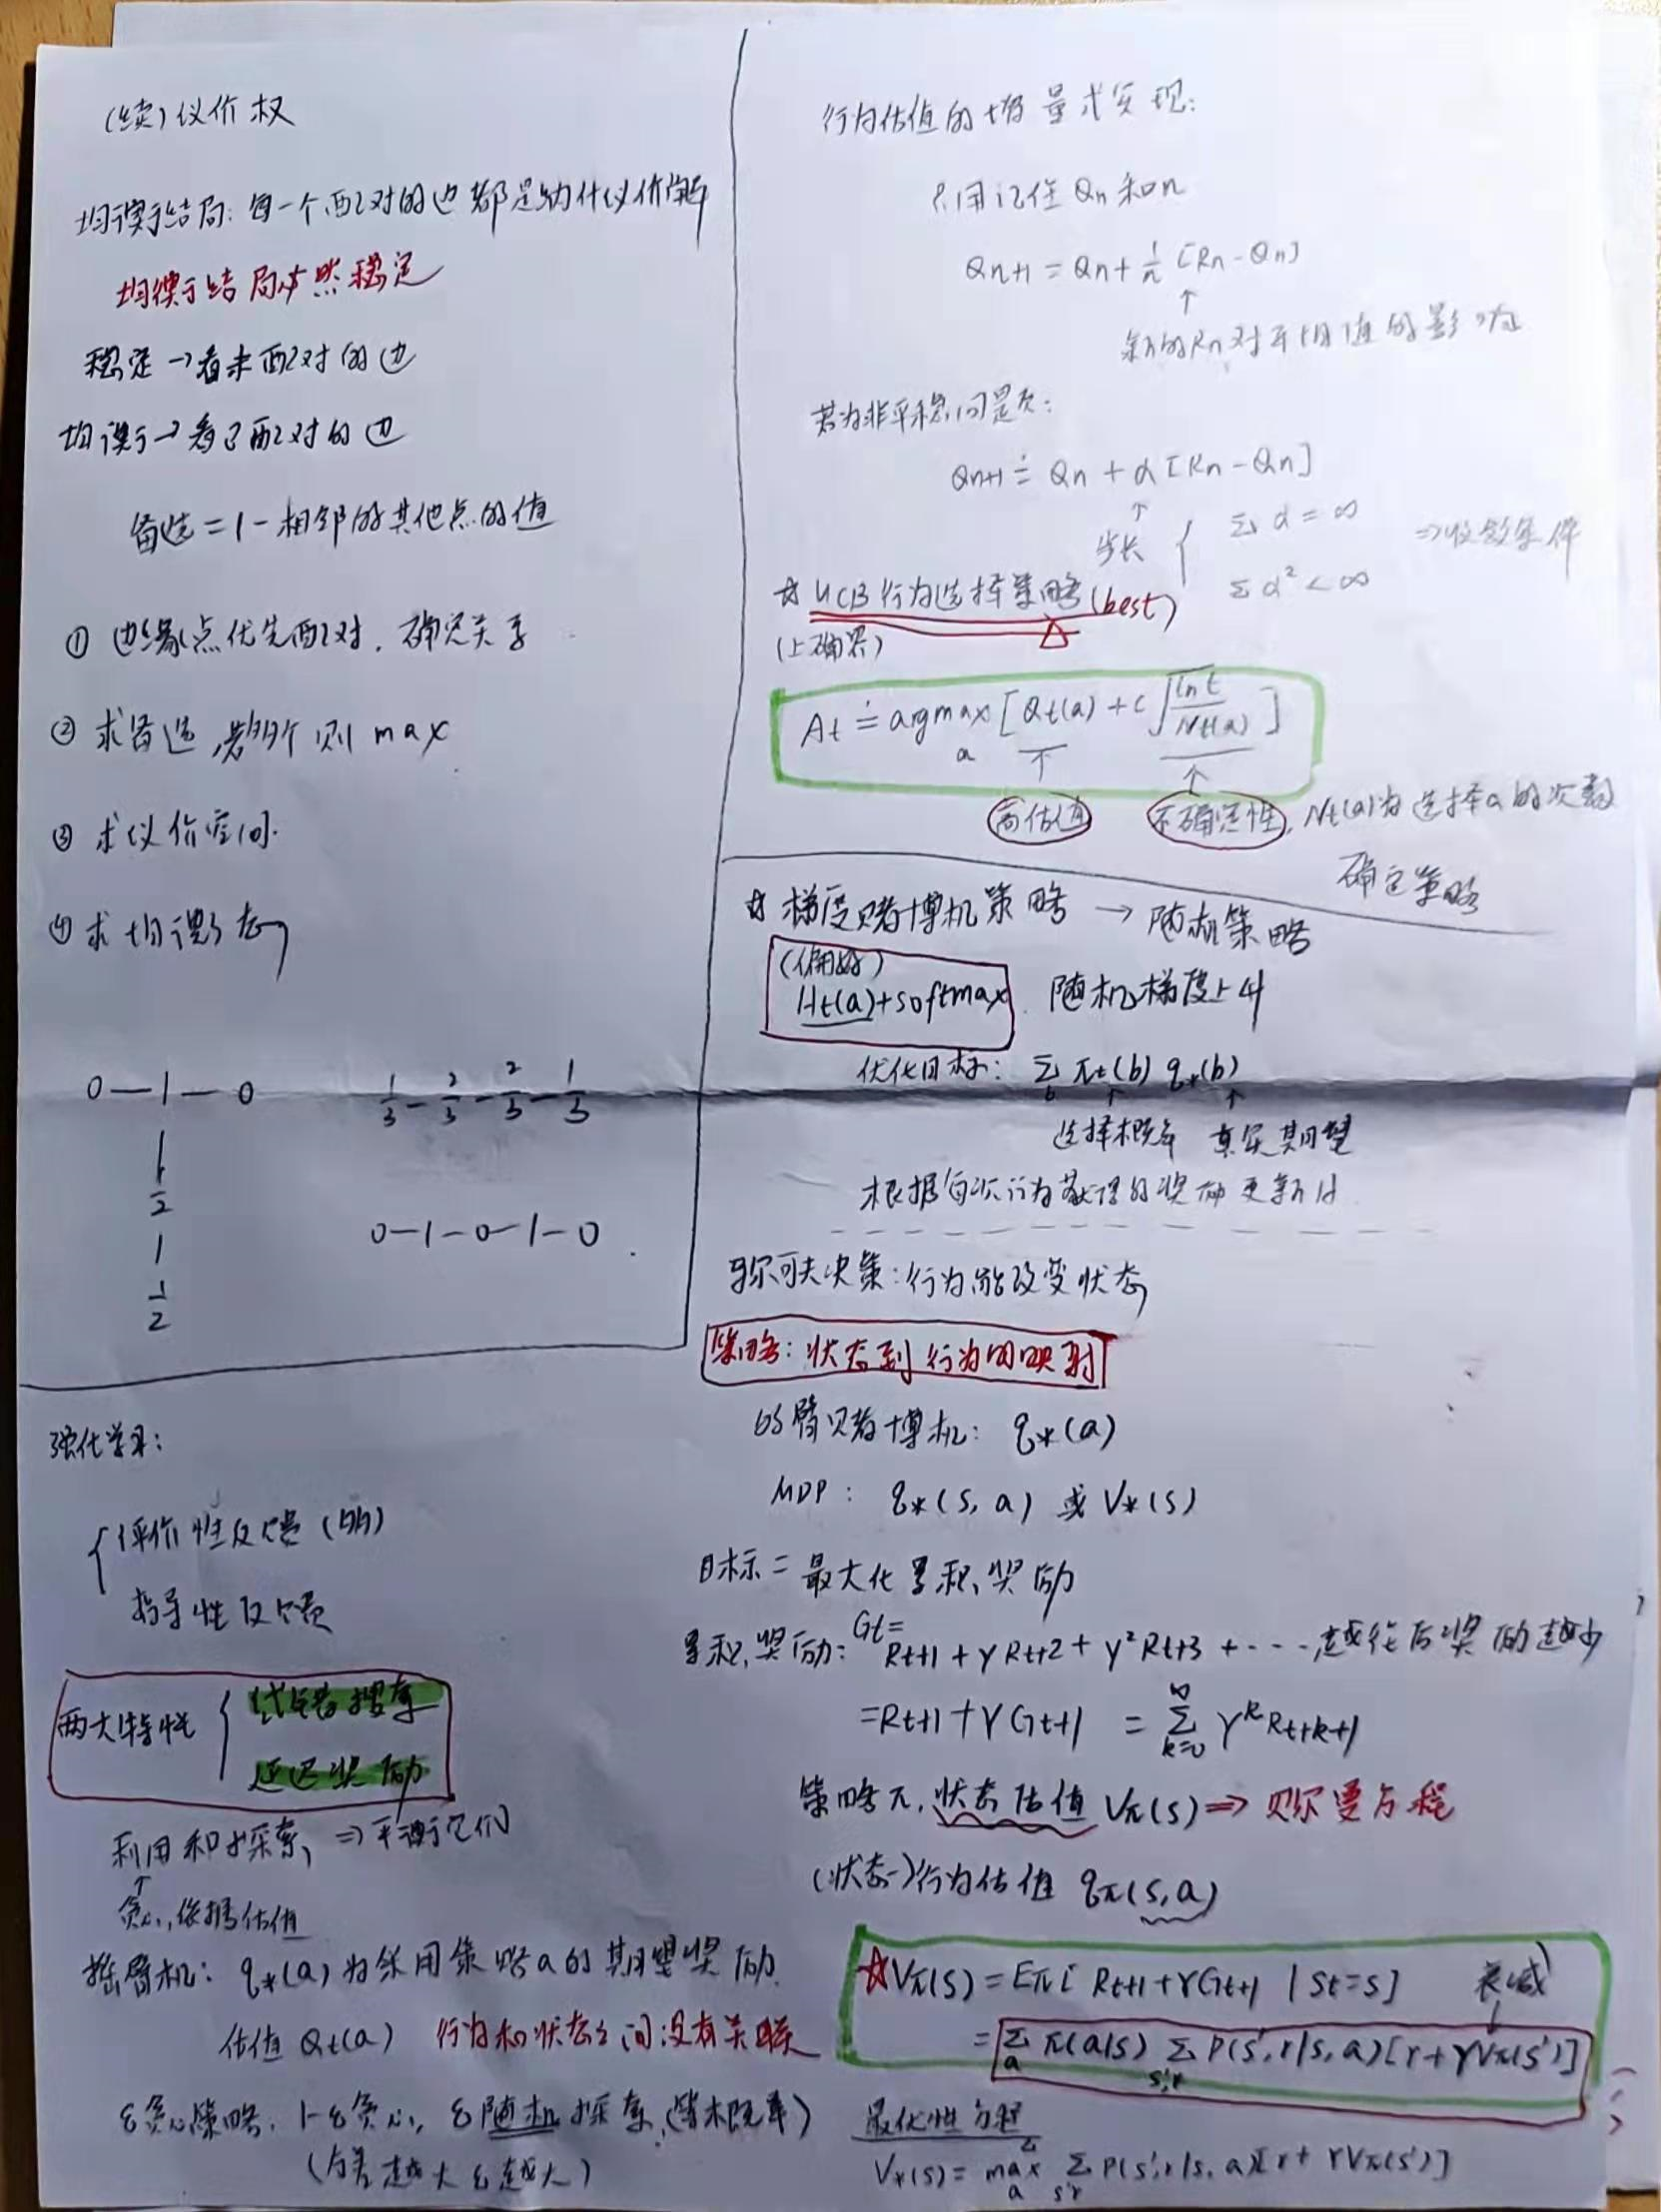 (续)议价权
均衡结局:每一个配对的边都是纳什议价解
均衡结局必然稳定
稳定→看未配对的边
均衡→看已配对的边
备选=1-相邻的其他点的值
① 边缘点优先配对,确定关系
② 求备选,若多个则max
③ 求议价空间.
④ 求均衡态
0—1—0
1/2
1
1/2
1/3-2/3-2/3-1/3
0-1-0-1-0
强化学习:
评价性反馈(MAB)
指导性反馈
两大特性
试错搜索
延迟奖励
利用和探索,⇒平衡它们
↑
贪心,依据估值
摇臂机: q*(a)为采用策略a的期望奖励
估值 Qt(a) 行为和状态之间没有关联
ε贪心策略. 1-ε贪心, ε随机探索,(等概率)
(方差越大ε越大)
行为估值的增量式实现:
只用记住Qn和n
Qn+1 = Qn + 1/n [Rn - Qn]
↑
新的Rn对平均值的影响
若为非平稳问题:
Qn+1 ≐ Qn + α [Rn - Qn]
↑
步长 { Σα = ∞ ⇒收敛条件
Σα² < ∞
☆ UCB行为选择策略(best)
(上确界)
At ≐ argmax a [Qt(a) + c √(ln t / Nt(a))]
高估值 不确定性, Nt(a)为选择a的次数
确定策略
☆ 梯度赌博机策略 → 随机策略
(偏好)
Ht(a)+softmax 随机梯度上升
优化目标: Σb πt(b) q*(b)
↑ ↑
选择概率 真实期望
根据每次行为获得的奖励更新H
马尔可夫决策:行为能改变状态
策略:状态到行为的映射
多臂赌博机: q*(a)
MDP: q*(s, a) 或 V*(s)
目标=最大化累积奖励
累积奖励: Gt= Rt+1 + γRt+2 + γ²Rt+3 + ···,越往后奖励越少
=Rt+1 + γGt+1 = Σ∞k=0 γᵏRt+k+1
策略π,状态估值 Vπ(s) ⇒ 贝尔曼方程
(状态-)行为估值 qπ(s,a)
☆Vπ(s) = Eπ[Rt+1 + γGt+1 | St=s] 衰减
= Σa π(a|s) Σs',r P(s',r|s,a)[r + γVπ(s')]
最优性方程
V*(s) = max a Σs'r P(s',r|s,a)[r + γVπ(s')]